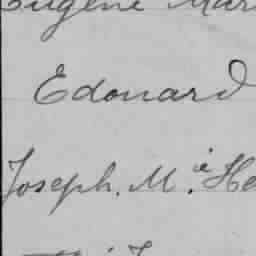 Eugène Mar
Edouard
Joseph. M.ie He